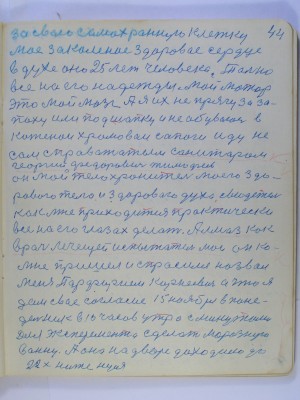 за свою самохранную клетку 44
Мое закаленое здоровое сердце
в духе оно 25 лет человека, Только
все на его надежды мой мотор
это мой мозг А я их не прячу за за-
паху или под шапку и не обуваю в
кожаном хромовом сапоги иду не
сам с провожатым санитаром
он мой телохронител моего здо-
рового тело и здорового духа, свидетел
как мне приходится практически
все на его глазах делать. А
врач лечущей он ко-
мне пришел и спросил назвал
меня Парфирием Корнеевич а что я
дал свое согласие 15 ноября в поне-
дельник в 10 часов утра с минутками
для эксперименто сделать морозную
ванну. А оно на дворе доходило до
22х ниже нуля